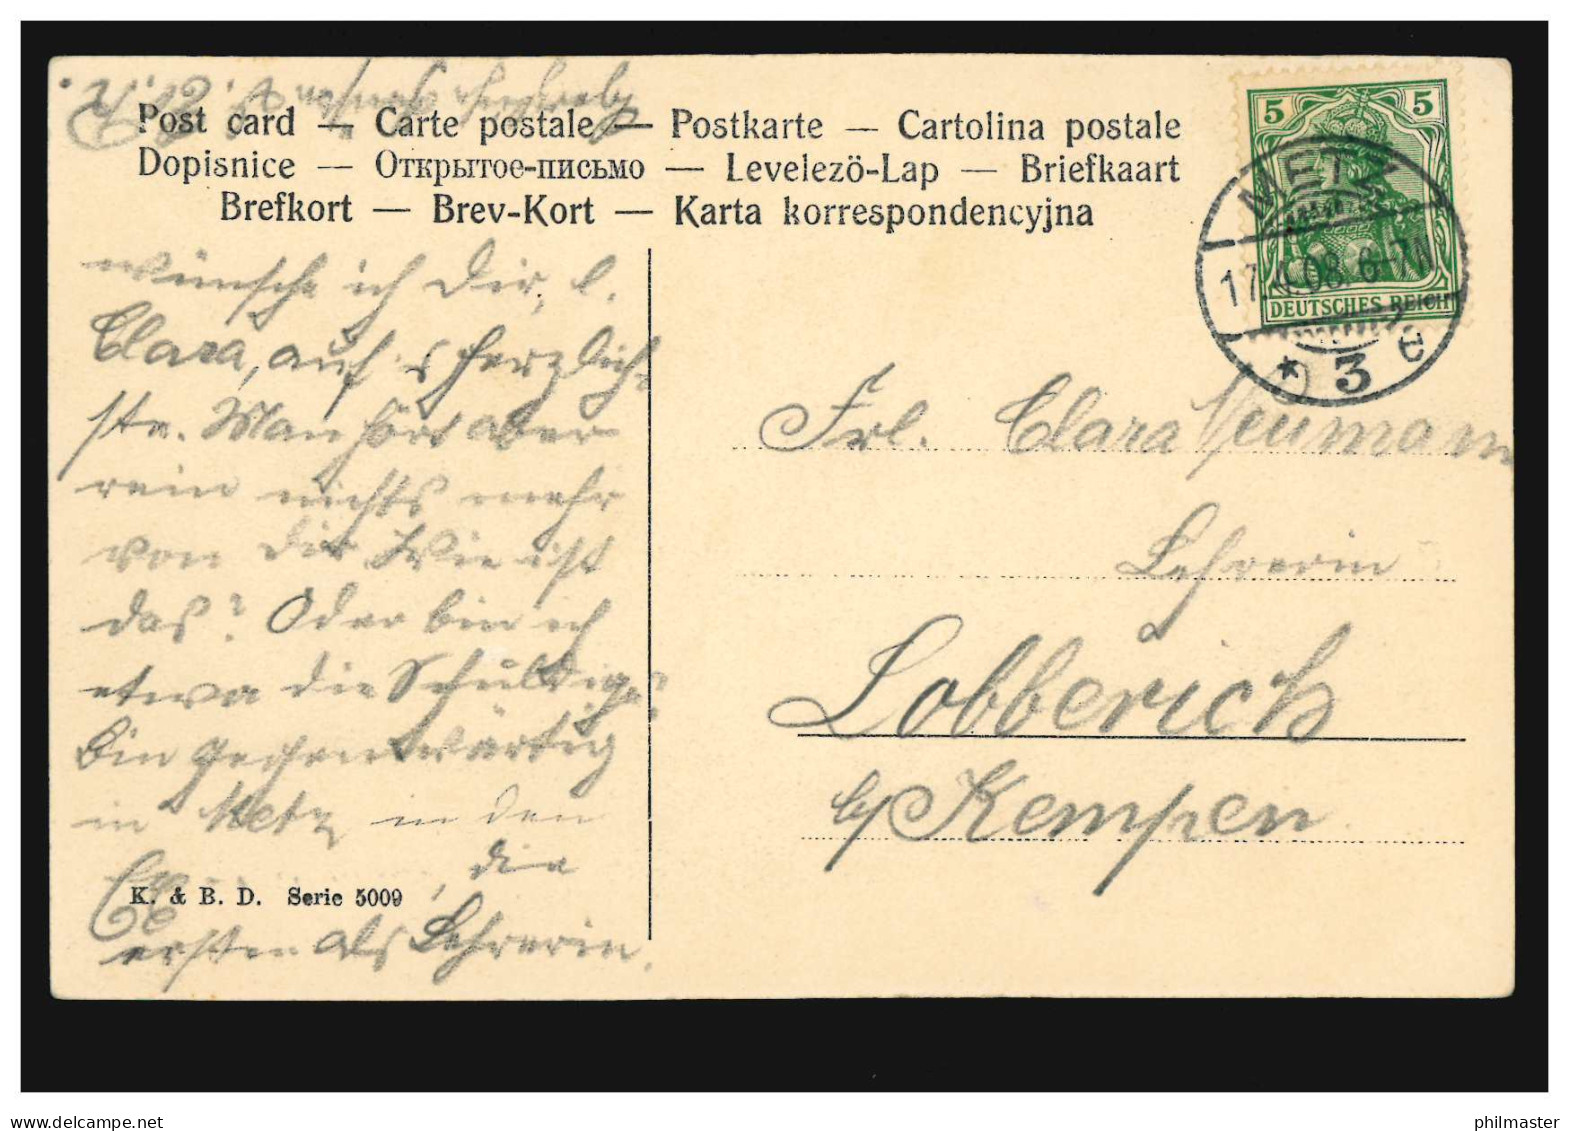 Post card — Carte postale — Postkarte — Cartolina postale
Dopisnice — Открытое-письмо — Levelező-Lap — Briefkaart
Brefkort — Brev-Kort — Karta korrespondencyjna
5 5
DEUTSCHES REICH
METZ
17.4.08. 6-7N
* 3 e
wünsche ich Dir, l.
Clara, auf's herzlich-
ste. Man hört aber
rein nichts mehr
von Dir Wie ist
das? Oder bin ich
etwa die Schuldige?
Bin gegenwärtig
in Metz in den
die
ersten als Lehrerin.
K. & B. D. Serie 5009
Frl. Clara Neumann
Lehrerin
Lobberich
b/ Kempen
philmaster